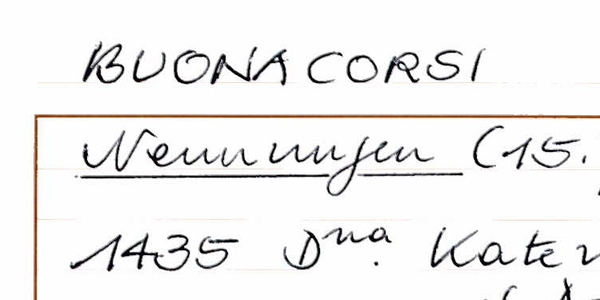 BUONACORSI
Nennungen (15.
1435 Dna. Kate